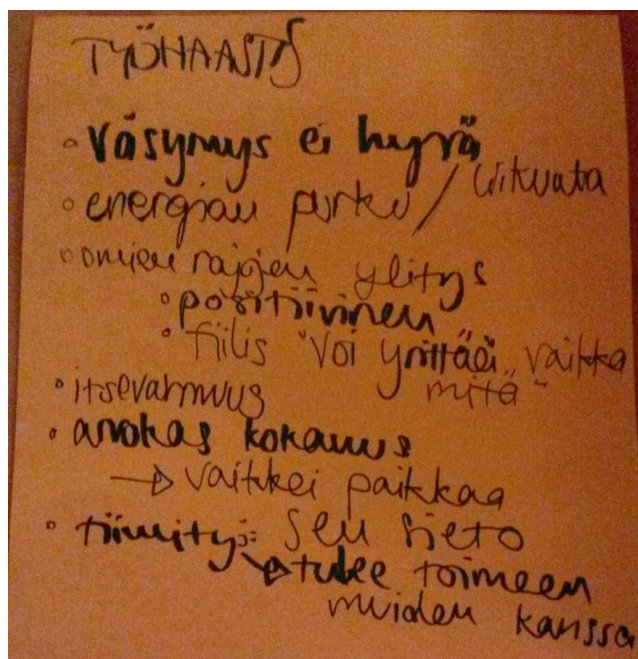 TYÖHAASTIS
• väsymys ei hyvä
• energian purku / liikuata
• omien rajojen ylitys
• positiivinen
• fiilis "voi yrittää" vaikka
mitä"
• itsevarmuus
• arvokas kokemus
→ vaikkei paikkaa
• tiimityö: sen sieto
→ tulee toimeen
muiden kanssa